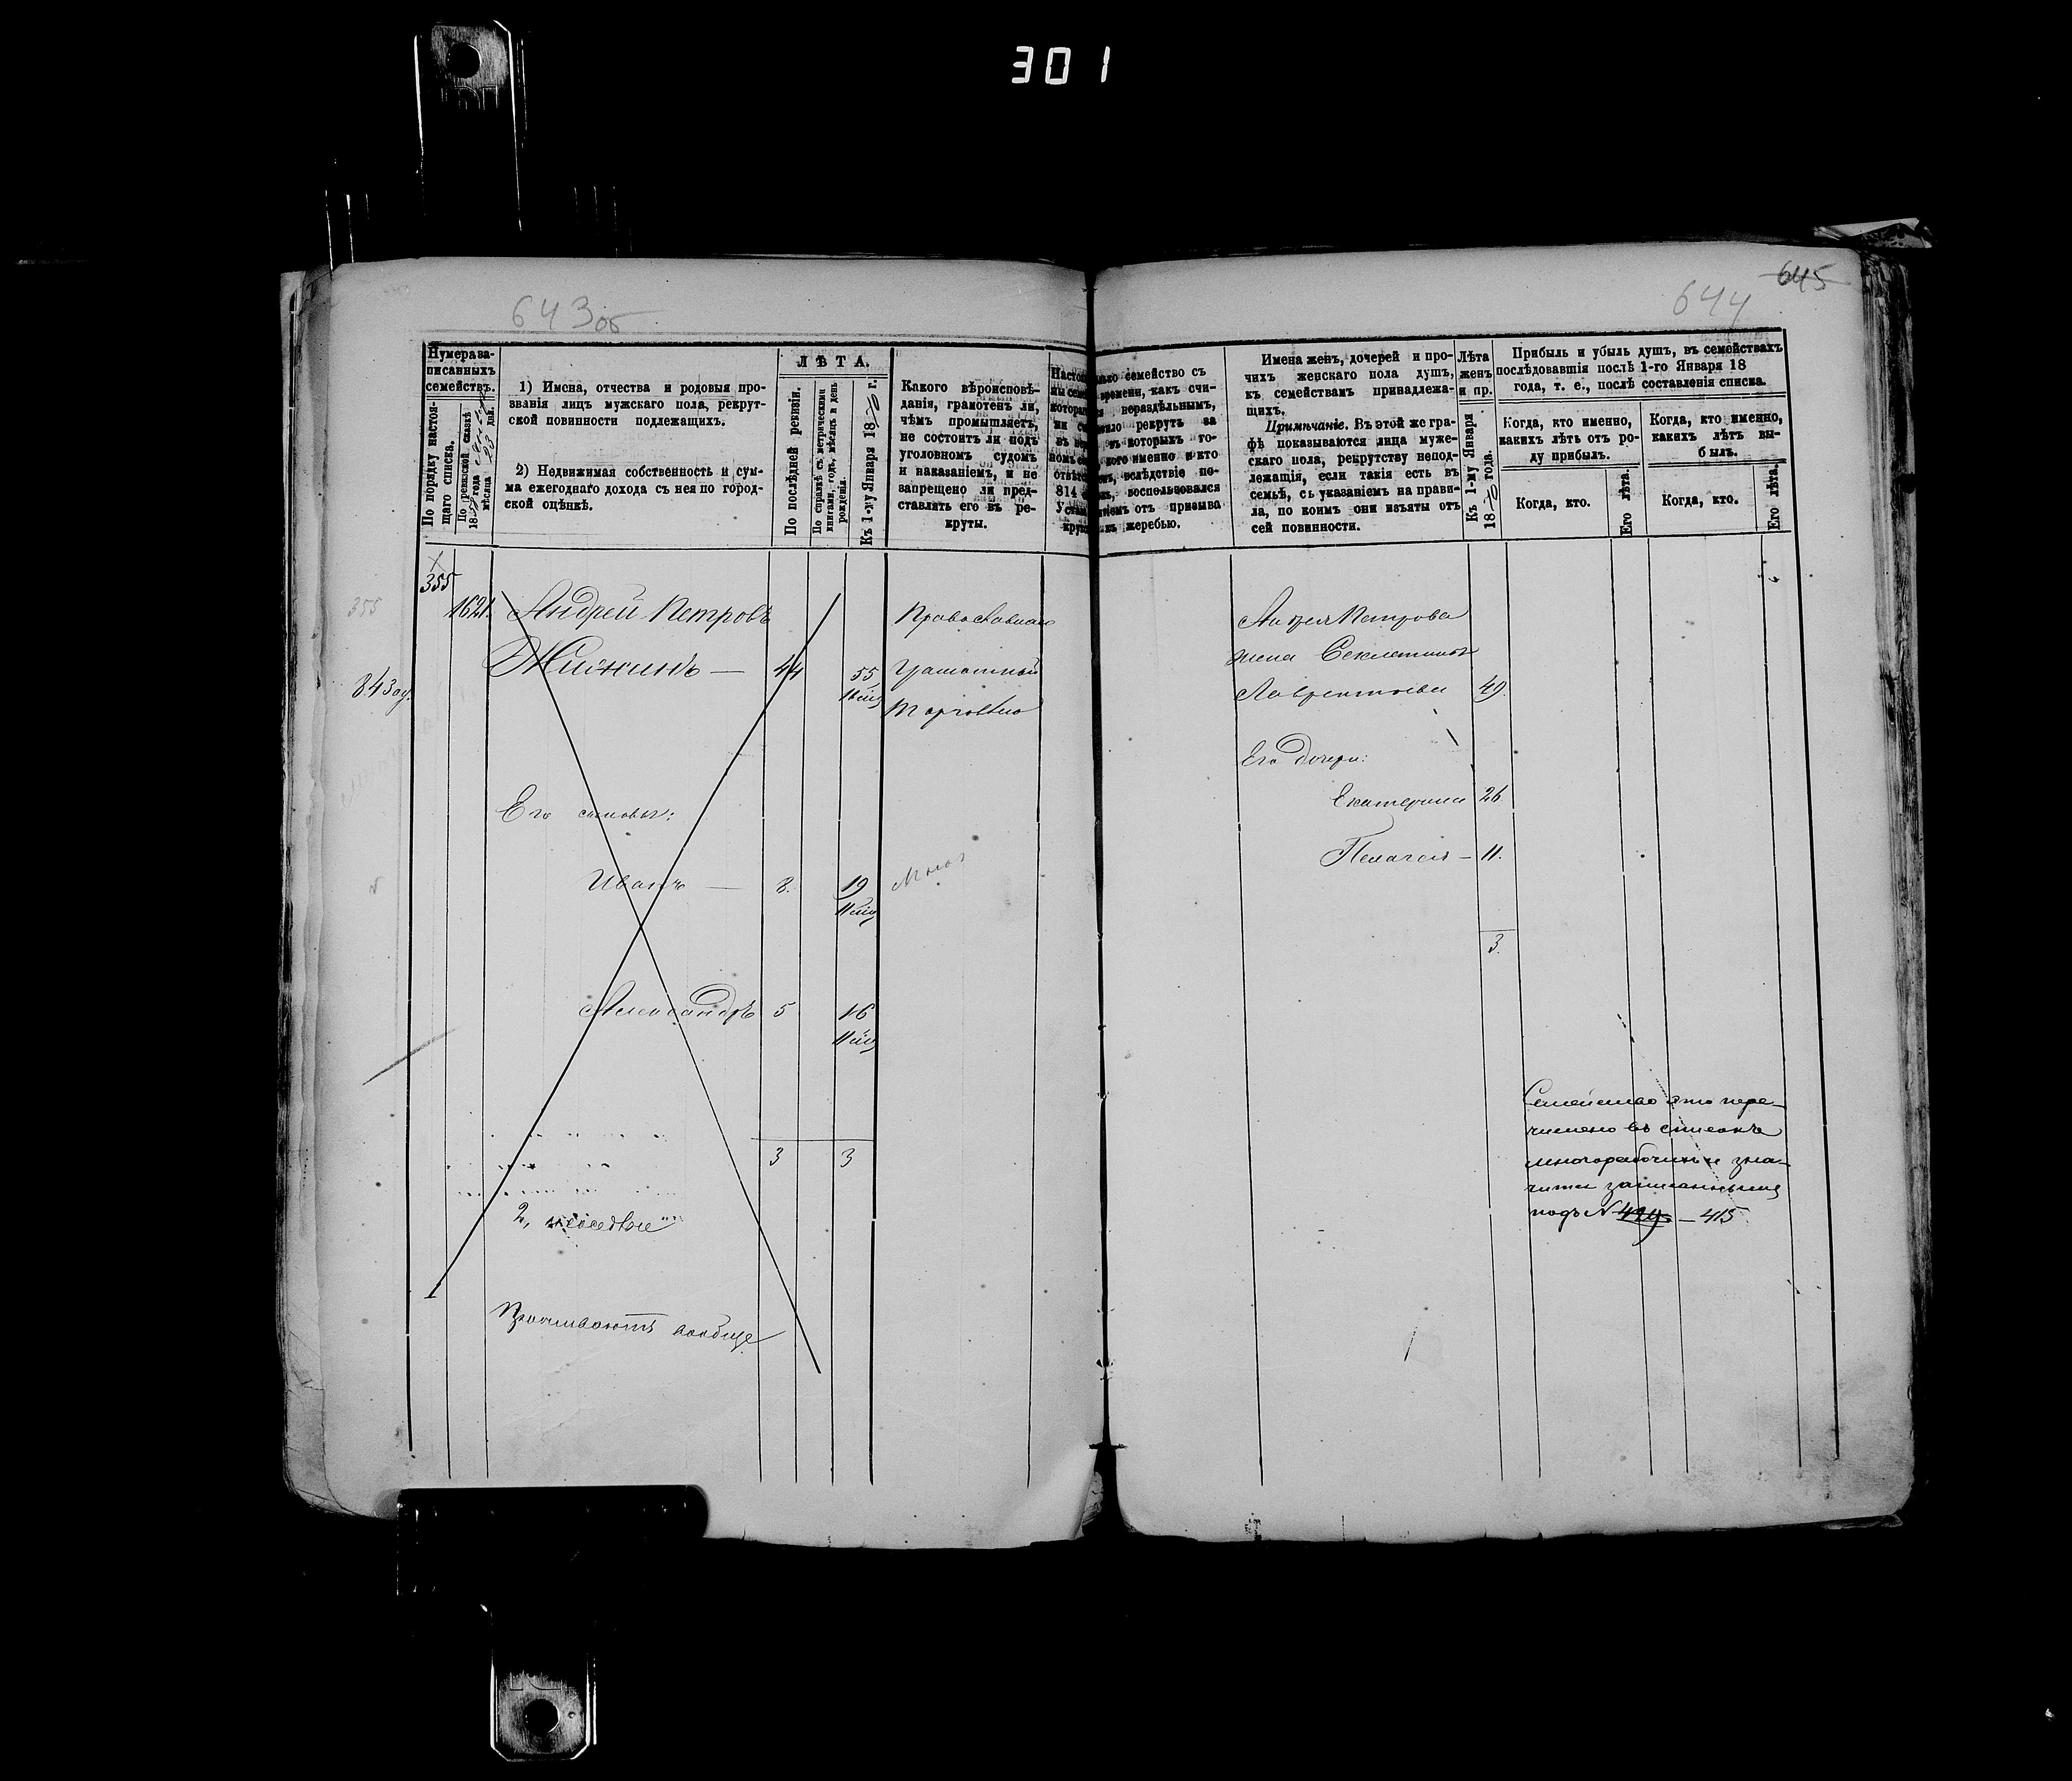 301
643 об
Нумера за-
писанныхъ
семействъ.
По порядку настоя-
щаго списка.
По ревизской сказкѣ
18 года
мѣсяца 23 дня.
1) Имена, отчества и родовыя про-
званія лицъ мужскаго пола, рекрут-
ской повинности подлежащихъ.
2) Недвижимая собственность и сум-
ма ежегоднаго дохода съ нея по город-
ской оцѣнкѣ.
ЛѢТА.
По послѣдней ревизіи.
По справкѣ съ метрическими
книгами, годъ, мѣсяцъ и день
рожденія.
Къ 1-му Января 1870 г.
Какого вѣроисповѣ-
данія, грамотенъ ли,
чѣмъ промышляетъ,
не состоитъ ли подъ
уголовномъ судомъ
и наказаніемъ, и не
запрещено ли пред-
ставлять его въ ре-
круты.
355
355
1621.
Андрей Петровъ
Жилкинъ — 44 55
Православнаго
Грамотный
Торговлю
843
Его сыновья:
Иванъ — 8. 19
Александръ 5 16
3 3
2,
Проживаютъ вообще
645
644
семейство съ
времени, какъ счи-
нераздѣльнымъ,
рекрутъ за
въ которыхъ го-
кого именно и кто
вслѣдствіе по-
воспользовался
отъ призыва
жеребью.
Имена женъ, дочерей и про-
чихъ женскаго пола душъ,
къ семействамъ принадлежа-
щихъ.
Примѣчаніе. Въ этой же гра-
фѣ показываются лица муже-
скаго пола, рекрутству непод-
лежащія, если такія есть въ
семьѣ, съ указаніемъ на прави-
ла, по коимъ они изъяты отъ
сей повинности.
Лѣта
женъ
и пр.
Къ 1-му Января
1870 года.
Прибыль и убыль душъ, въ семействахъ
послѣдовавшія послѣ 1-го Января 18
года, т. е., послѣ составленія списка.
Когда, кто именно,
какихъ лѣтъ отъ ро-
ду прибылъ.
Когда, кто именно,
какихъ лѣтъ вы-
былъ.
Когда, кто.
Его лѣта.
Когда, кто.
Его лѣта.
Андрея Петрова
жена Секлетинья
Лаврентьева 49.
Его дочери:
Екатерина 26
Пелагея — 11.
3.
Семейство это пере-
числено въ списокъ
многорабочихъ и зна-
чится записаннымъ
подъ № 415